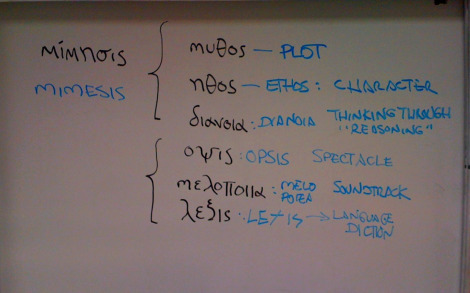 μίμησις
MIMESIS
μυθος — PLOT
ηθος — ETHOS: CHARACTER
διανοια: DIANOIA THINKING THROUGH
"REASONING"
οψις: OPSIS SPECTACLE
μελοποιια: MELO SOUNDTRACK
POIEA
λεξις: LEXIS → LANGUAGE
DICTION